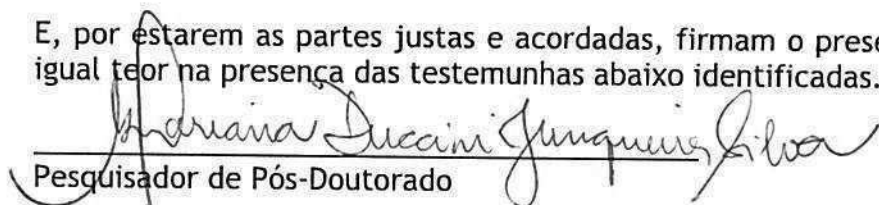 E, por estarem as partes justas e acordadas, firmam o prese
igual teor na presença das testemunhas abaixo identificadas.
Mariana Duccini Junqueira Silva
Pesquisador de Pós-Doutorado